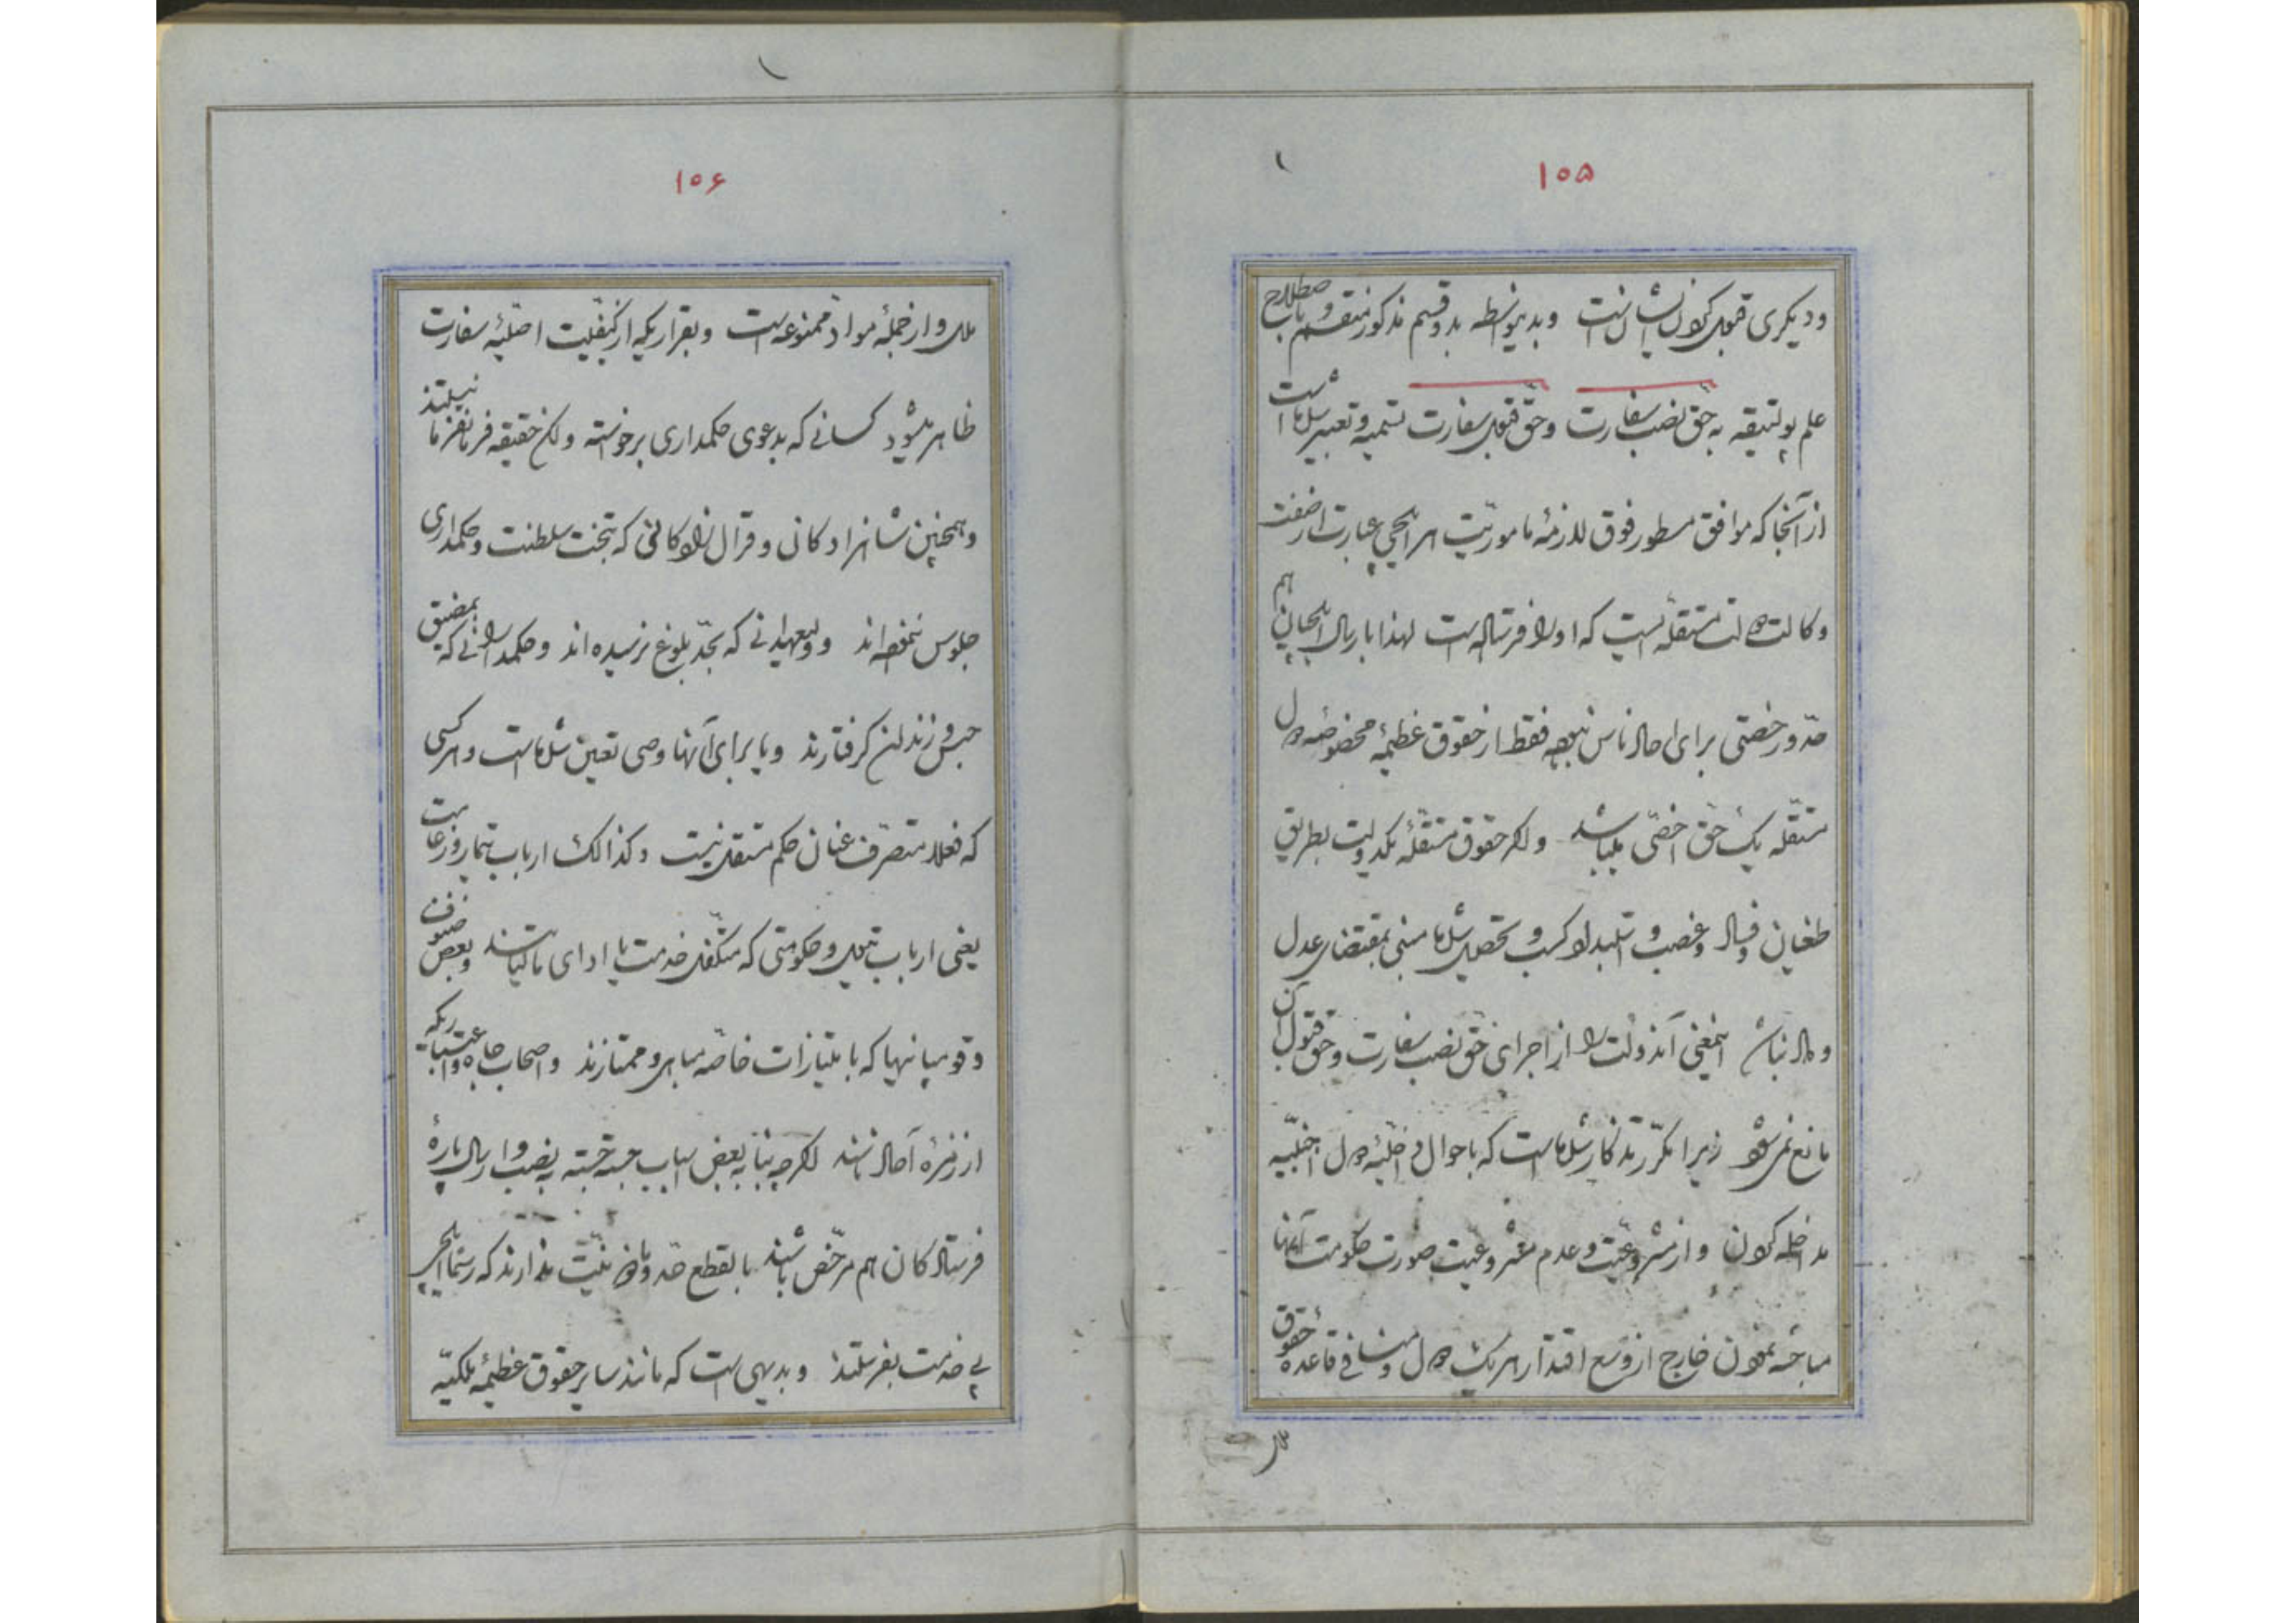 ۱۰۵
ودیکری قبول کردن ایشان است وبدینواسطه بدو قسم مذکور منقسم و باصطلاح
علم پولتیقه به حق نصب سفارت وحق قبول سفارت تسمیه وتعبیر شده است
از آنجا که موافق مسطور فوق لازمهٔ مأموریت هر ایلچی عبارت از صفت
وکالت دولت مستقله ایست که او را فرستاده است لهذا بارسال ایلچیان هم
حد ورخصتی برای احاد ناس نبوده فقط از حقوق عظیمهٔ مخصوصه دول
مستقله یک حق اخصی میباشد ولکر حقوق مستقلهٔ یکدولت بطریق
طغیان وفساد وغصب و استبداد کسب و تحصیل شده مبنی بمقتضای عدل
وداد نباشد اینمعنی آندولت را از اجرای حق نصب سفارت وحق قبول آن
مانع نمی شود زیرا مکرر تذکار شده است که باحوال داخلیهٔ دول اجنبیه
مداخله کردن و از مشروعیت وعدم مشروعیت صورت حکومت آنها
مباحثه نمودن خارج از وسع اقتدار هر یک دول ومنافی قاعدهٔ حقوق
ملل
۱۰۶
ملل واز جملهٔ مواد ممنوعه است وبقراریکه از کیفیت اصلیهٔ سفارت
ظاهر میشود کسانی که بدعوی حکمداری برخواسته ولی فی الحقیقه فرمانفرما نیستند
وهمچنین شاهزادکان وقرال زادکانی که بتخت سلطنت وحکمداری
جلوس ننموده اند وولیعهدانی که بحد بلوغ نرسیده اند وحکمدارانی که بمضیق
حبس وزندان کرفتارند ویا برای آنها وصی تعیین شده است وهر کسی
که فعلا متصرف عنان حکم مستقل نیست وکذالک ارباب تیمار وزعامت
یعنی ارباب تیول وحکومتی که متکفل خدمت یا ادای مالیات اند وبعض صنوف
وقومپانیها که بامتیازات خاصه مباهی وممتازند واصحاب جاه واعتباریکه
از زمره آحاد ناسند اکرچه بنا به بعض اسباب جسته جسته به نصب وارسال پارهٔ
فرستادکان هم مرخص باشند بالقطع حد وماذونیت ندارند که رسما ایلچی
پی خدمت بفرستند وبدیهی است که مانند سایر حقوق عظیمه ملکیه